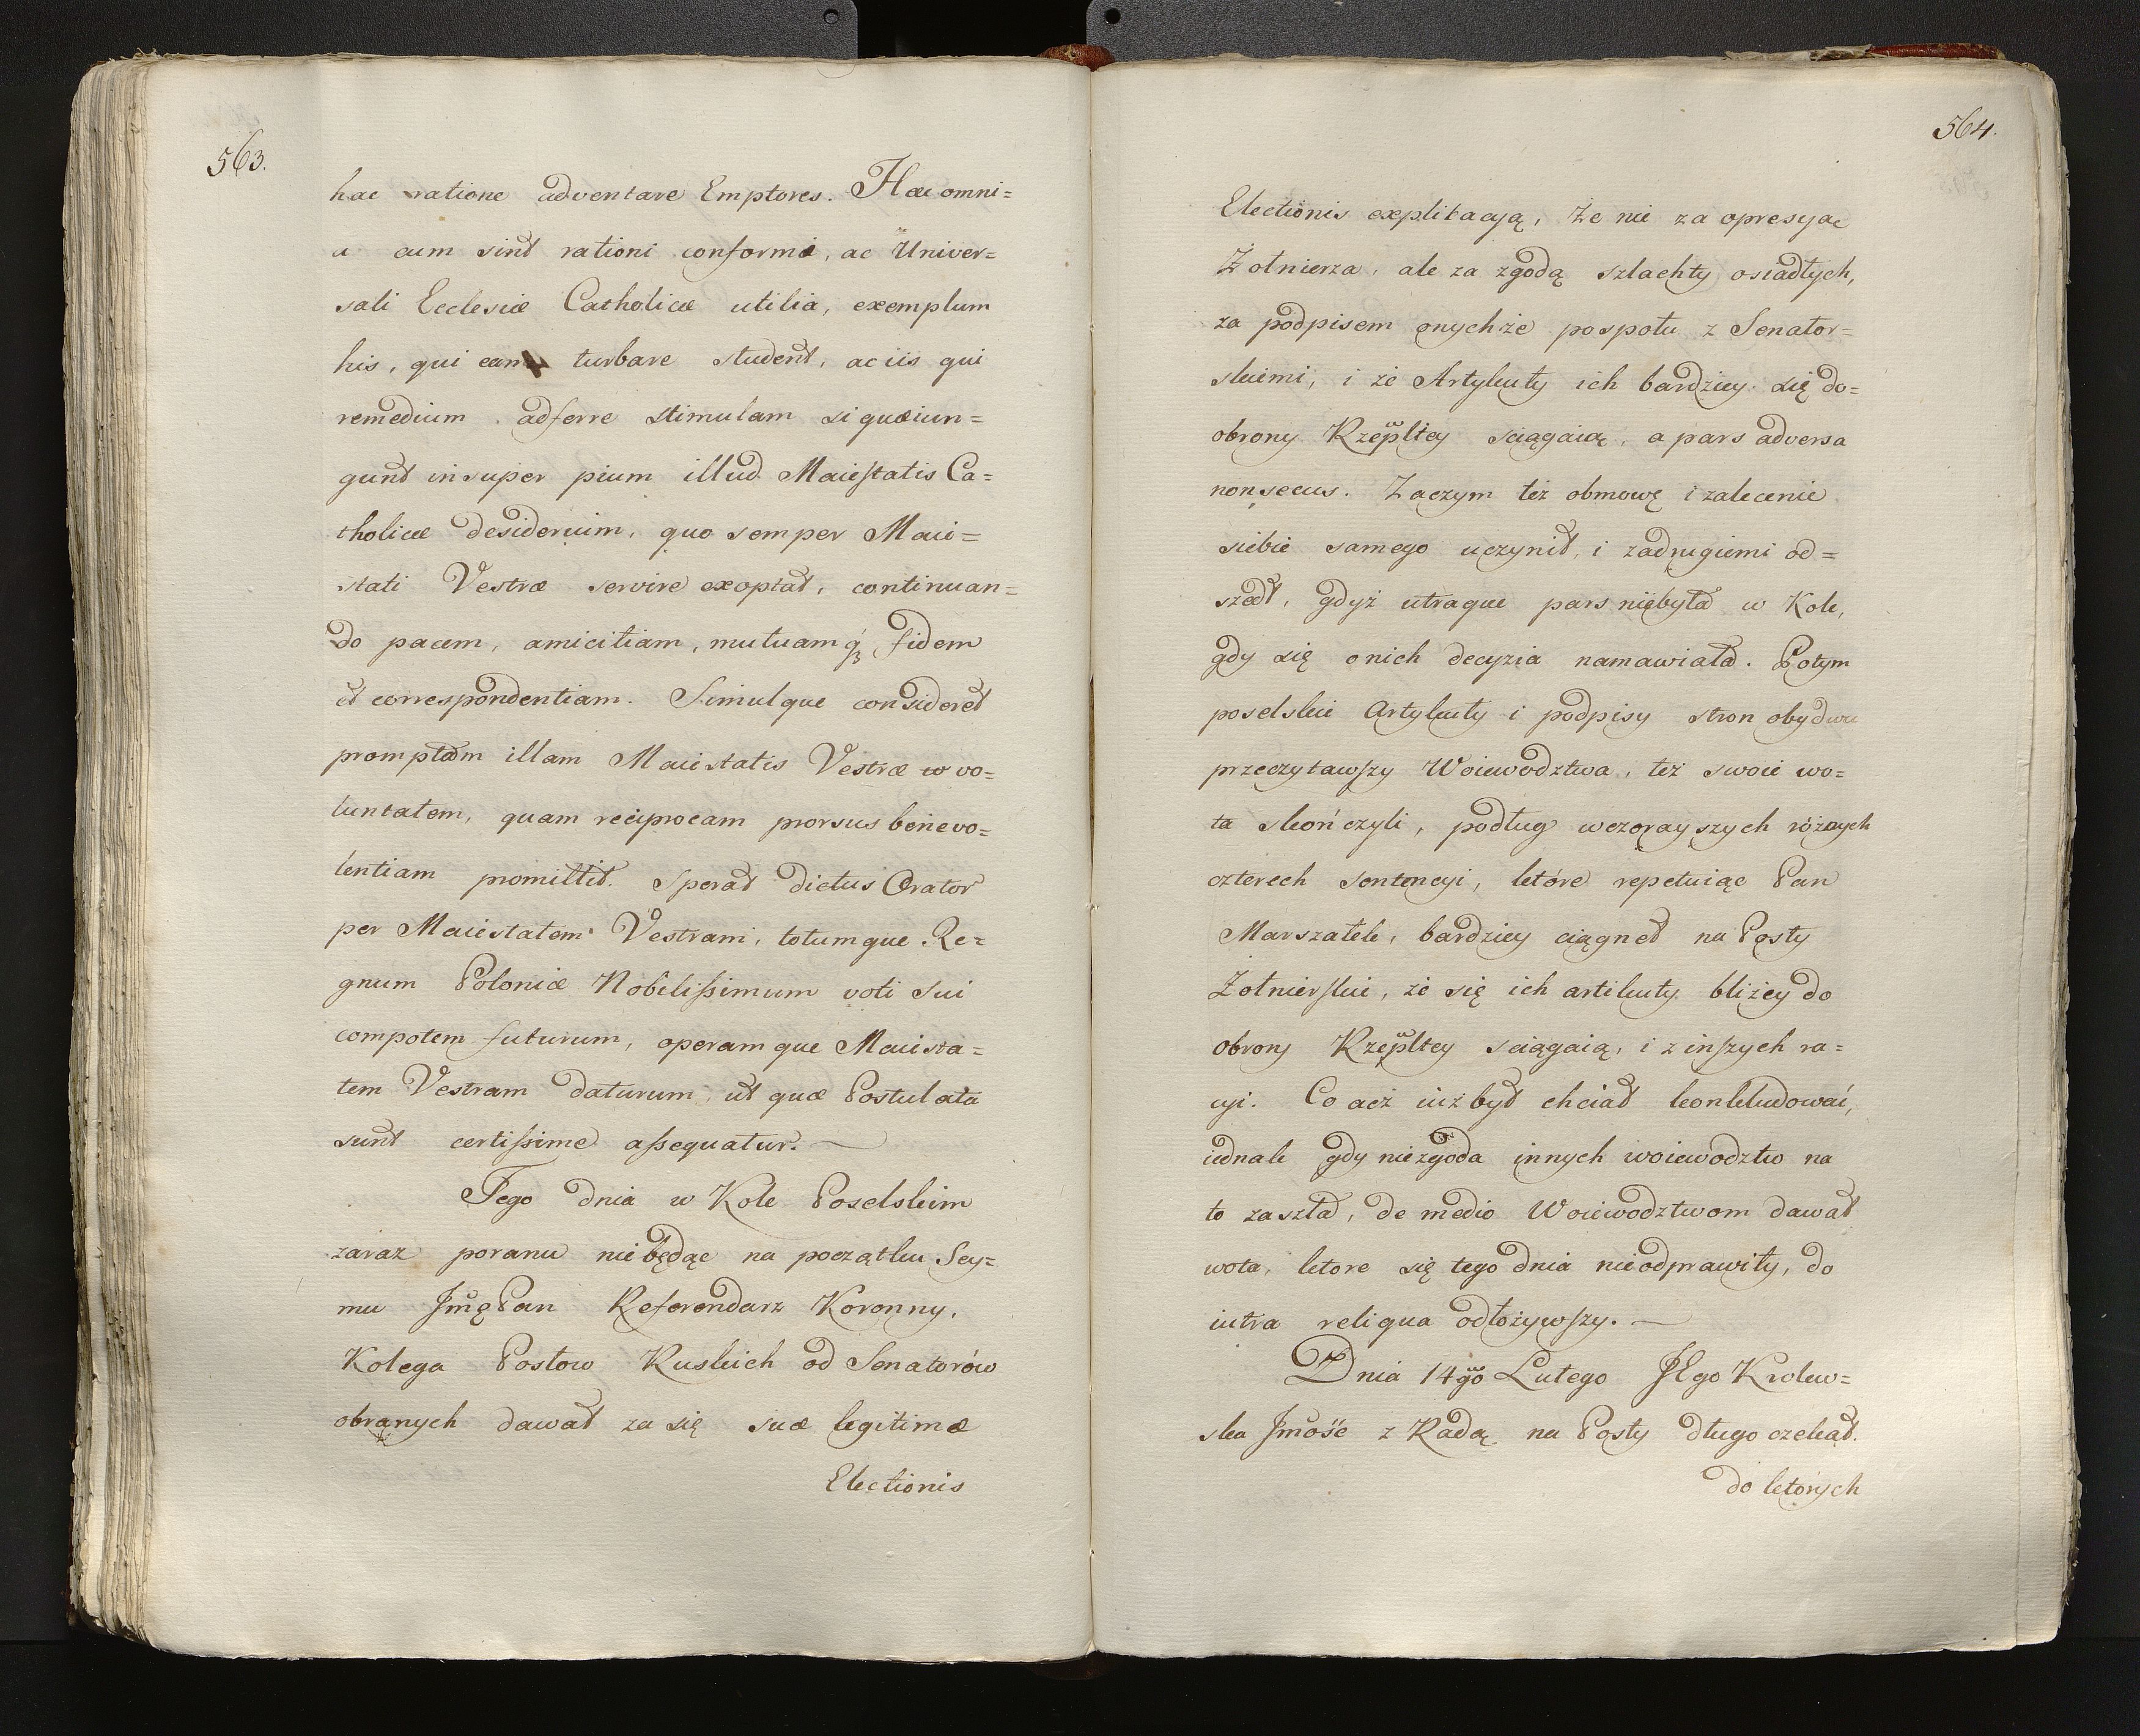 563.
hac ratione adventare Emptores. Hæc omni=
a cum sint rationi conformia, ac Univer=
sali Ecclesiæ Catholicæ utilia, exemplum
his, qui eam turbare student, ac iis qui
remedium adferre stimulam si quæiun=
gunt insuper pium illud Maiestatis Ca=
tholicæ desiderium, quo semper Maie=
stati Vestræ servire exoptat, continuan=
do pacem, amicitiam, mutuamq́ꝫ fidem
et correspondentiam. Simulque consideret
promptam illam Maiestatis Vestræ vo=
luntatem, quam reciprocam prorsus benevo=
lentiam promittit. Sperat dictus Orator
per Maiestatem Vestram, totumque Re=
gnum Poloniæ Nobilißimum voti sui
compotem futurum, operamque Maiesta=
tem Vestram daturum, ut quæ Postulata
sunt certißime aßequatur. —
Tego dnia w Kole Poselskim
zaraz poranu niebędąc na początku Sey=
mu Jmę Pan Referendarz Koronny,
Kolega Posłow Ruskich od Senatorów
obranych dawał za się suæ legitimæ
Electionis
564.
Electionis explikacyą, Że nie za opresyąc
Żołnierza, ale za zgodą szlachty osiadłych,
za podpisem onychże pospołu z Senator=
skiemi, i że Artykuły ich bardziey się do=
obrony Rzepltey sciągaią, a pars adversa
non secus. Zaczym też obmowę i zalecenie
siebie samego uczynił, i zadrugiemi od=
szedł, gdyż utraque pars niebyła w Kole,
gdy się onich decyzia namawiała. Potym
poselskie Artykuły i podpisy stron obydwu
przeczytawszy Woiewodztwa, też swoie wo=
ta skończyli, podług wczorayszych różnych
czterech sentencyi, które repetuiąc Pan
Marszałek, bardziey ciągnął na Posły
Żołnierskie, że się ich artikuły bliżey do
obrony Rzepltey sciągaią, i z inszych ra=
cyi. Co acż iuż był chciał konkludować,
iednak gdy niezgoda innych woiewodztw na
to zaszła, de medio Woiewodztwom dawał
wota, ktore się tego dnia nieodprawiły, do
iutra reliqua odłożywszy. —
Dnia 14go Lutego JEgo Krolew=
ska Jmość z Radą na Posły długo czekał.
do których